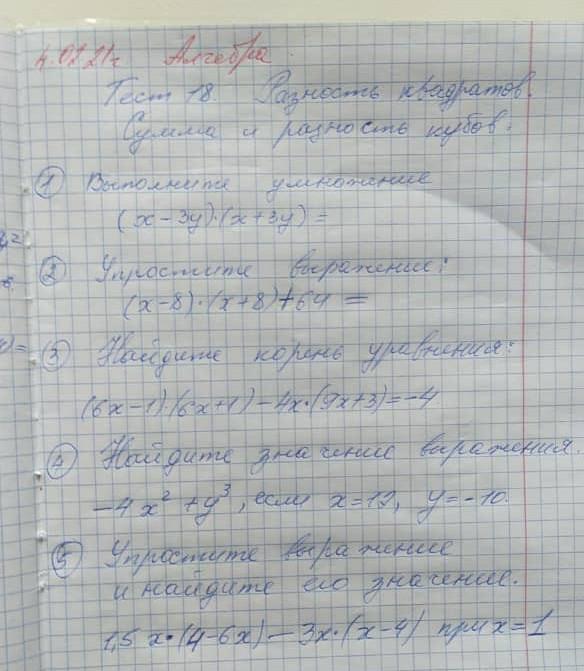 4.02.21г Алгебра.
Тест 18. Разность квадратов.
Сумма и разность кубов.
① Выполните умножение
(x-3y)·(x+3y) =
② Упростите выражение:
(x-8)·(x+8)+64 =
③ Найдите корень уравнения:
(6x-1)·(6x+1)-4x·(9x+3)=-4
④ Найдите значение выражения.
-4x²+y³, если x=12, y=-10.
⑤ Упростите выражение
и найдите его значение.
1,5x·(4-6x)-3x·(x-4) при x=1